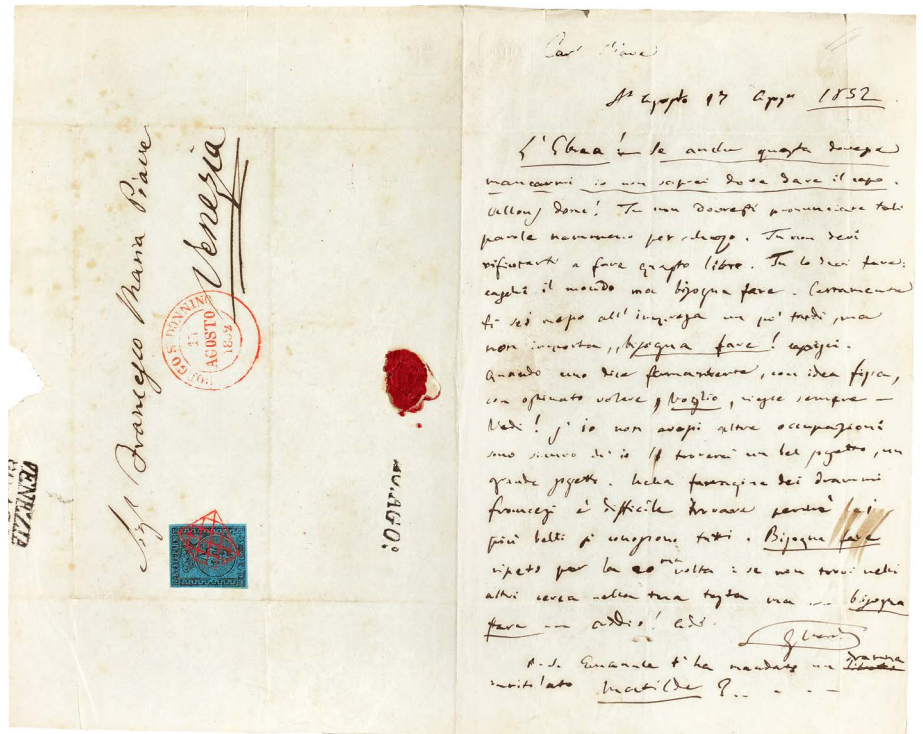 Sigr Francesco Maria Piave
Venezia
BORGO S. DONNINO
17
AGOSTO
1852
VENEZIA
Car' Piave
St Agata 17 Agos 1852
L'Ebrea! Se anche questa dovesse
mancarmi io non saprei dove dare il capo.
done! Tu non dovresti pronunciare tali
parole nemmeno per scherzo. Tu non devi
rifiutarti a fare questo libro. Tu lo devi fare:
caschi il mondo ma bisogna fare. Certamente
ti sei messo all'impresa un po' tardi, ma
non importa, bisogna fare! capisci.
Quando uno dice fermamente, con idea fissa,
con ostinato volere, Voglio, riesce sempre —
Vedi! s'io non avessi altre occupazioni
sono sicuro di io ti troverei un bel sogetto, un
grande sogetto. Nella farragine dei drammi
francesi è difficile trovare perchè i
più belli si conoscono tutti. Bisogna fare
ripeto per la 20ma volta: se non trovi nelli
altri cerca nella tua testa ma bisogna
fare addio! adi.
G Verdi
P.S. Emanuele t'ha mandato un dramma
intitolato Matilde?..